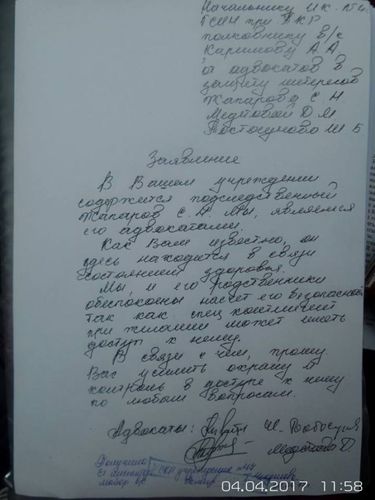 Начальнику И.К.
ГСИН при ПКР
полковнику в/с
Каримову А А
от адвокатов в
защиту интересов
Жапарова С Н
Медтовой Д М
Заявление
В Вашем учреждении
содержится подследственный
Жапаров С.Н. Мы, являемся
его адвокатами.
Как Вам известно, он
здесь находится в связи
состоянием здоровья.
Мы, и его родственники
обеспокоены насчет его безопасности
так как спец контингент
при желании может иметь
доступ к нему.
В связи с чем, прошу
Вас усилить охрану и
контроль в доступе к нему
по любым вопросам.
Адвокаты: Ш.
Д.
Получено
04.04.2017 11:58